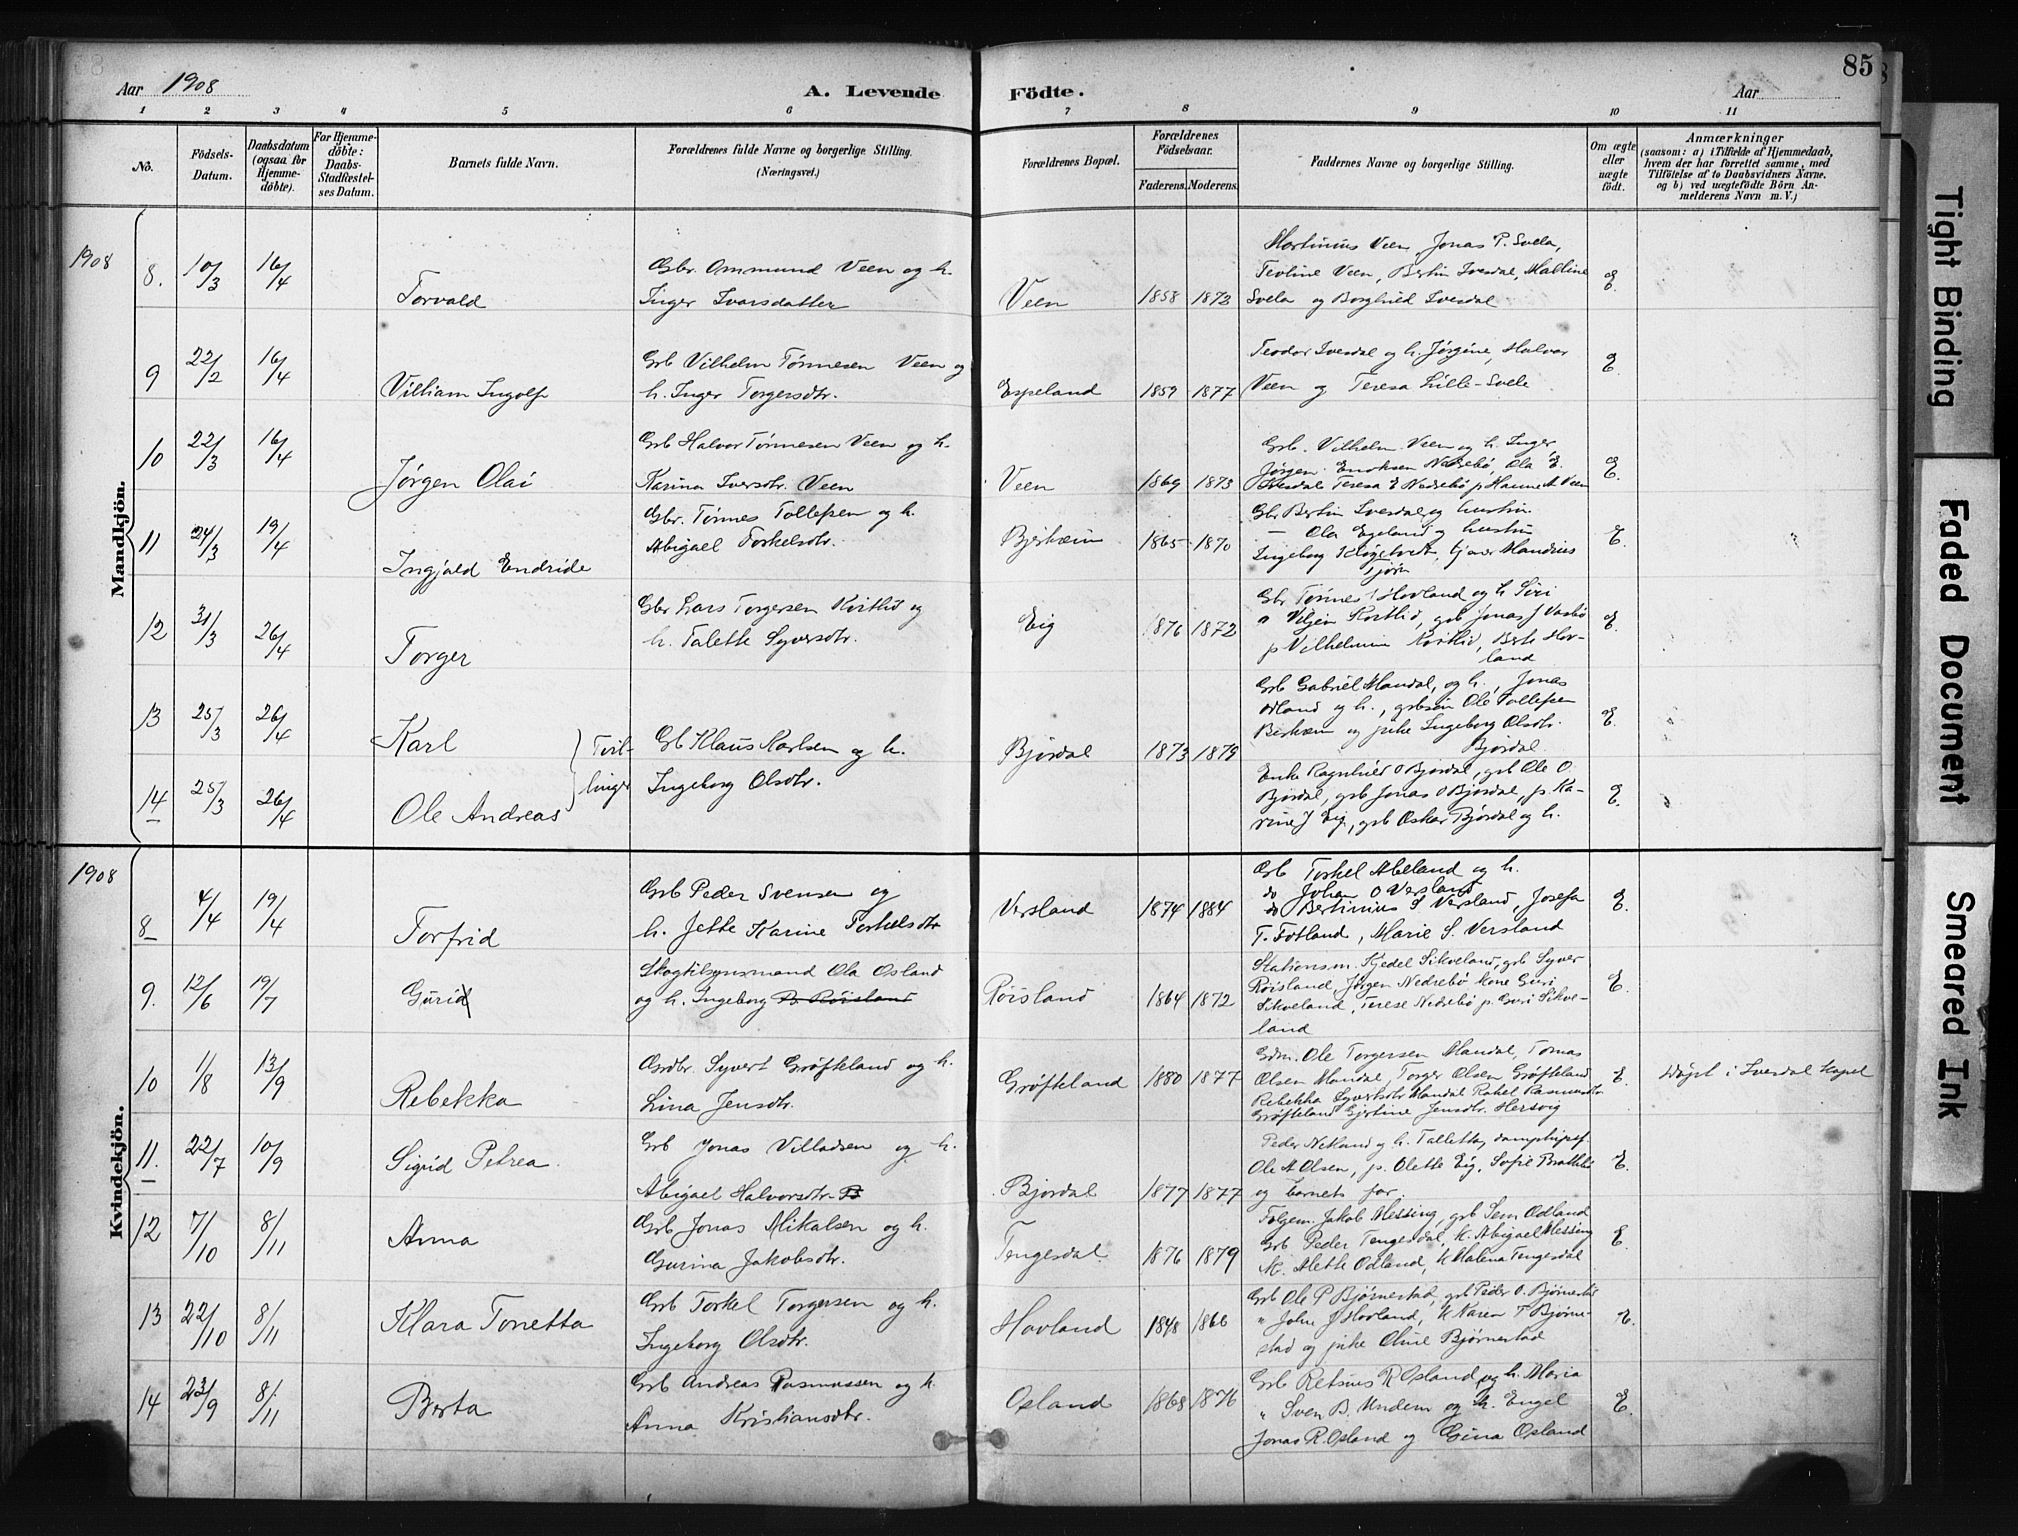 85
Aar 1908
A. Levende Födte.
Aar
1 2 3 4 5 6 7 8 9 10 11
No.
Födsels-Datum.
Daabsdatum (ogsaa for Hjemme-døbte).
For Hjemme-döbte: Daabs-Stadfæstel-ses Datum.
Barnets fulde Navn.
Forældrenes fulde Navne og borgerlige Stilling. (Næringsvei.)
Forældrenes Bopæl.
Forældrenes Födselsaar.
Faderens. Moderens.
Faddernes Navne og borgerlige Stilling.
Om ægte eller uægte födt.
Anmærkninger
(saasom: a) i Tilfælde af Hjemmedaab,
hvem der har forrettet samme, med
Tilföielse af to Daabsvidners Navne.
og b) ved uægtefödte Börn An-
melderens Navn m. V.)
Mandkjön.
1908
8. 10/3 16/4 Torvald
Gbr. Ommund Veen og h.
Inger Ivarsdatter
Veen 1858 1873
Martinius Veen, Jonas P. Svela,
Teoline Veen, Bertin Ivesdal, Maltine
Svela og Borghild Ivesdal
E.
9 22/2 16/4 Villiam Ingolf
Grb Vilhelm Tønnesen Veen og
h. Inger Torgersdtr.
Espeland 1859 1877
Teodor Ivesdal og h. Jørgine, Halvor
Veen og Teresa Lille-Svele
E.
10 22/3 16/4 Jørgen Olai
Grb Halvor Tønnesen Veen og h.
Karina Iversdtr. Veen
Veen 1869 1873
Grb. Vilhelm Veen og h. Inger
Jørgen Enoksen Nedrebø, Ola E.
Ivesdal Teresa E Nedrebø p Hanne A Veen
E.
11 24/3 19/4 Ingjald Endride
Gbr. Tønnes Tollefsen og h.
Abigael Torkelsdtr.
Bjerheim 1865 1870
Gbr Bertin Ivesdal og hustru
— Ola Egeland og hustru
Ingeborg Høgstvedt, tj.
Tjørn
E.
12 31/3 26/4 Torger
Gbr Lars Torgersen Kvitlid og
h. Talette Syversdtr.
Eig 1876 1872
Gbr Tønnes Hovland og h Siri
" Kvitlid, grb Jonas J Vasbø
p Vilhelmine Kvitlid, Berte Hov-
land
E.
13 25/3 26/4 Karl
Tvil-
linger
Grb Klaus Karlsen og h.
Ingeborg Olsdtr.
Bjørdal 1873 1879
Grb Gabriel Mandal, og h., Jonas
Odland og h., grbsøn Ole Tollefsen
Berheim og pike Ingeborg Olsdtr.
Bjørdal
E.
14 25/3 26/4 Ole Andreas
Enke Ragnhild O Bjørdal, grb Ole O.
Bjørdal, grb Jonas O Bjørdal, p. Ka-
rine J Eig, grb Oskar Bjørdal og h.
E.
Kvindekjön.
1908
8 4/4 19/4 Torfrid
Grb Peder Svensen og
h. Jette Karine Torkelsdtr
Versland 1874 1884
Grb Torkel Abeland og h.
do Johan O Versland
do Bertinius S Versland, Josefa
T. Fotland, Marie S. Versland
E.
9. 12/6 19/7 Gurid
Skogtilsynsmand Ola Osland
og h. Ingeborg B. Røisland
Røisland 1864 1872
Stationsm. Kjedel Sikveland, grb Syver
Røisland, Jørgen Nedrebø Kone Guri
Sikveland, Terese Nedrebø p. Guri Sikve-
land
E.
10 1/8 13/9 Rebekka
Grdbr. Syvert Grøfteland og h.
Lina Jensdtr.
Grøfteland 1880 1877
Gdm. Ole Torgersen Mandal, Tomas
Olsen Mandal, Torger Olsen Grøfteland
Rebekka Syvertsdtr Mandal Rakel Rasmusdtr.
Grøfteland Gjertine Jensdtr. Hersvig
E.
Døpt i Ivesdal Kapel
11. 22/7 10/9 Sigrid Petrea.
Grb Jonas Villadsen og h.
Abigael Halvorsdtr. B
Bjordal 1877 1877
Peder Netland og h. Talletta,
Ole A Olsen, p. Olette Eig, Sofie Bratteli
og barnets far.
E.
12 7/10 8/11 Anna
Grb Jonas Mikalsen og h.
Gurina Jakobsdtr.
Tengesdal 1876 1879
Følgem. Jakob Messing, grb Sem Odland
Grb Peder Tengesdal, K. Abigael Messing
K. Alette Odland, K Malena Tengesdal
E.
13 22/10 8/11 Klara Tonetta
Grb Torkel Torgersen og h.
Ingeborg Olsdtr.
Hovland 1848 1866
Grb Ole P Bjørnestad, grb Peder O. Bjørnestad
" John J Hovland, K Karen T Bjørne-
stad og pike Oline Bjørnestad
E.
14 23/9 8/11 Berta
Grb Andreas Rasmussen og h
Anna Kristiansdtr.
Osland 1868 1876
Grb Retsius R Osland og h. Maria
" Sven B. Undem og h. Engel
Jonas R. Osland og Gina Osland
E.
Tight Binding
Faded Document
Smeared Ink